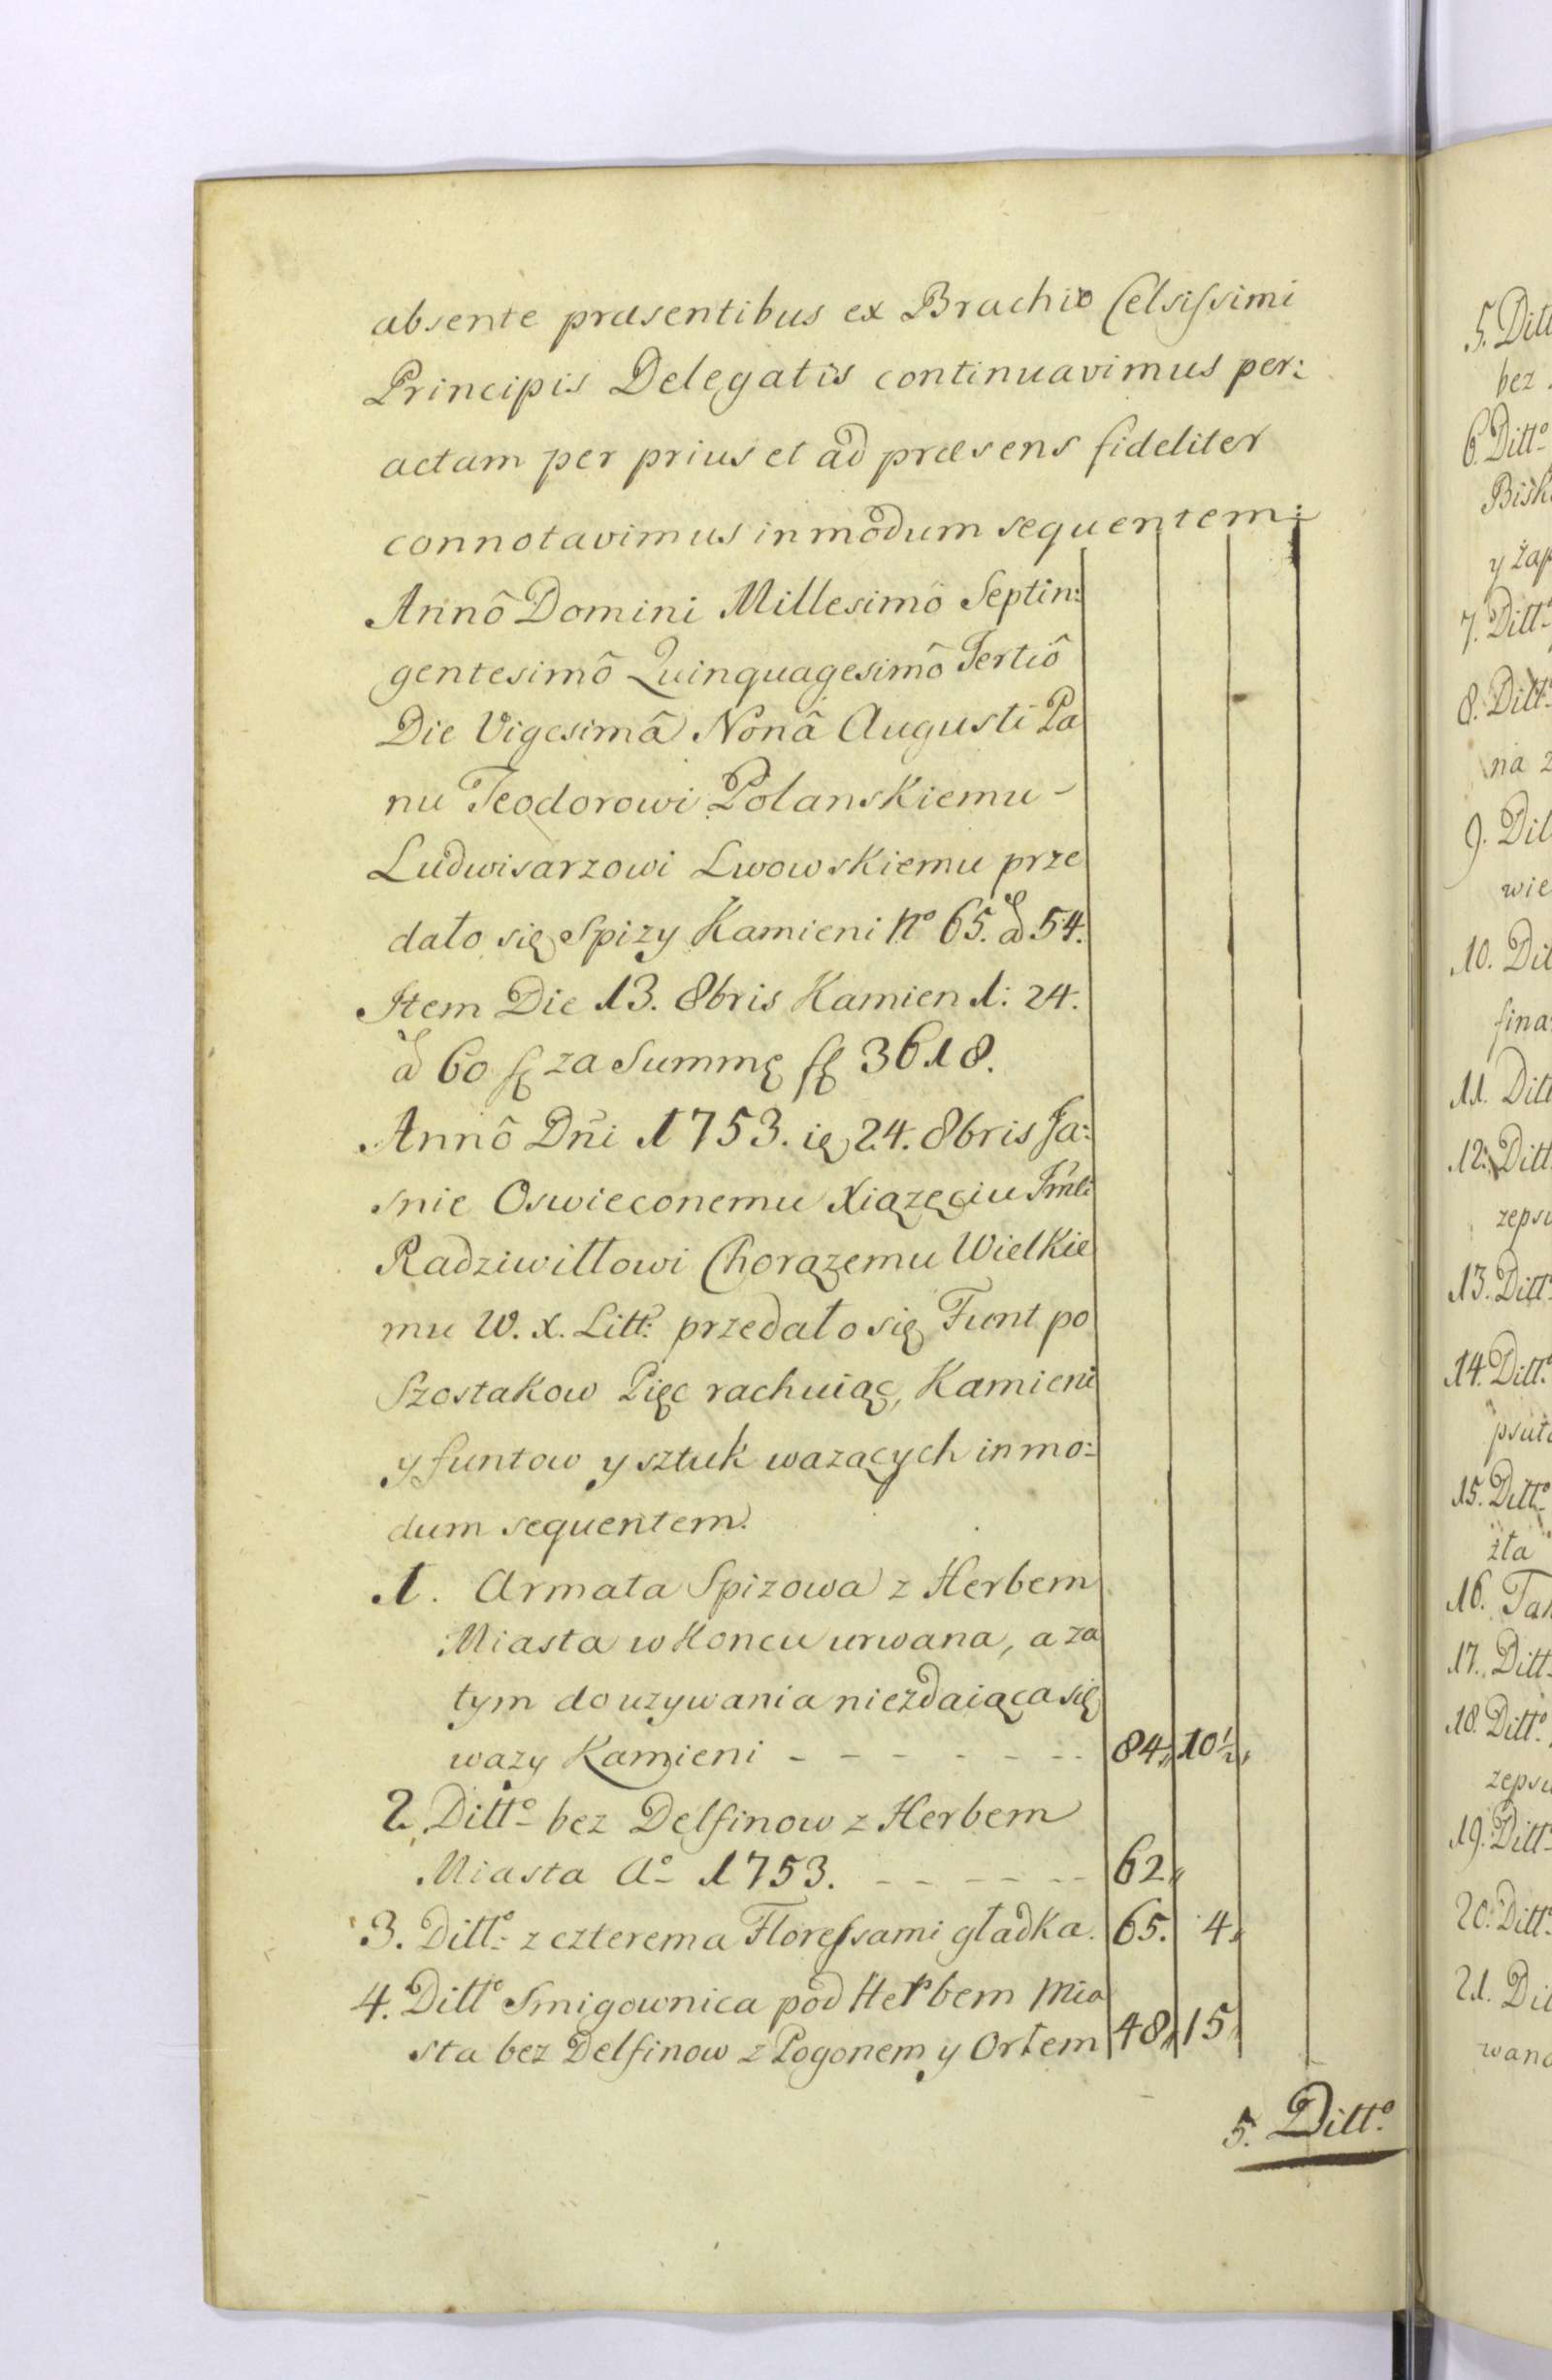 absente præsentibus ex Brachio Celsissimi
Principis Delegatis continuavimus per:
actam per prius et ad præsens fideliter
connotavimus in modum sequentem:
Annô Domini Millesimô Septin:
gentesimô Quinquagesimô Tertiô
Die Vigesimâ Nonâ Augusti Pa
nu Teodorowi Polanskiemu -
Ludwisarzowi Lwowskiemu prze
dało się Spizy Kamieni No 65. ad 54.
Item Die 13. 8bris Kamien 1: 24.
ad 60 fl za Summę fl 3618.
Annô Dñi 1753. ię 24. 8bris Ja:
snie Oswieconemu Xiązęciu Jmći
Radziwiłłowi Chorązemu Wielkie
mu W. X. Litt: przedało się Funt po
Szostakow Pięc rachuiąc, Kamieni
y funtow y sztuk wazących in mo:
dum sequentem.
1. Armata Spizowa z Herbem
Miasta w Koncu urwana, a za
tym do uzywania niezdaiąca się
wazy Kamieni - - - - - - - 84„ 10½„
2. Ditto bez Delfinow z Herbem
Miasta Ao 1753. - - - - - - 62„
3. Ditto z czterema Floressami gładka. 65. 4„
4. Ditto Smigownica pod Herbem Mia
sta bez Delfinow z Pogonem y Orłem 48„ 15„
5. Ditto
5. Ditt
bez
6. Ditto
7. Ditt
8. Ditt
na z
9. Dit
wie
10. Dit
fina
11. Ditt
12. Ditt
zepsu
13. Ditt
14. Ditt
psuta
15. Ditto
zła
16. Tak
17. Ditt
18. Ditto
zepsu
19. Ditt
20. Ditt
21. Dit
wana